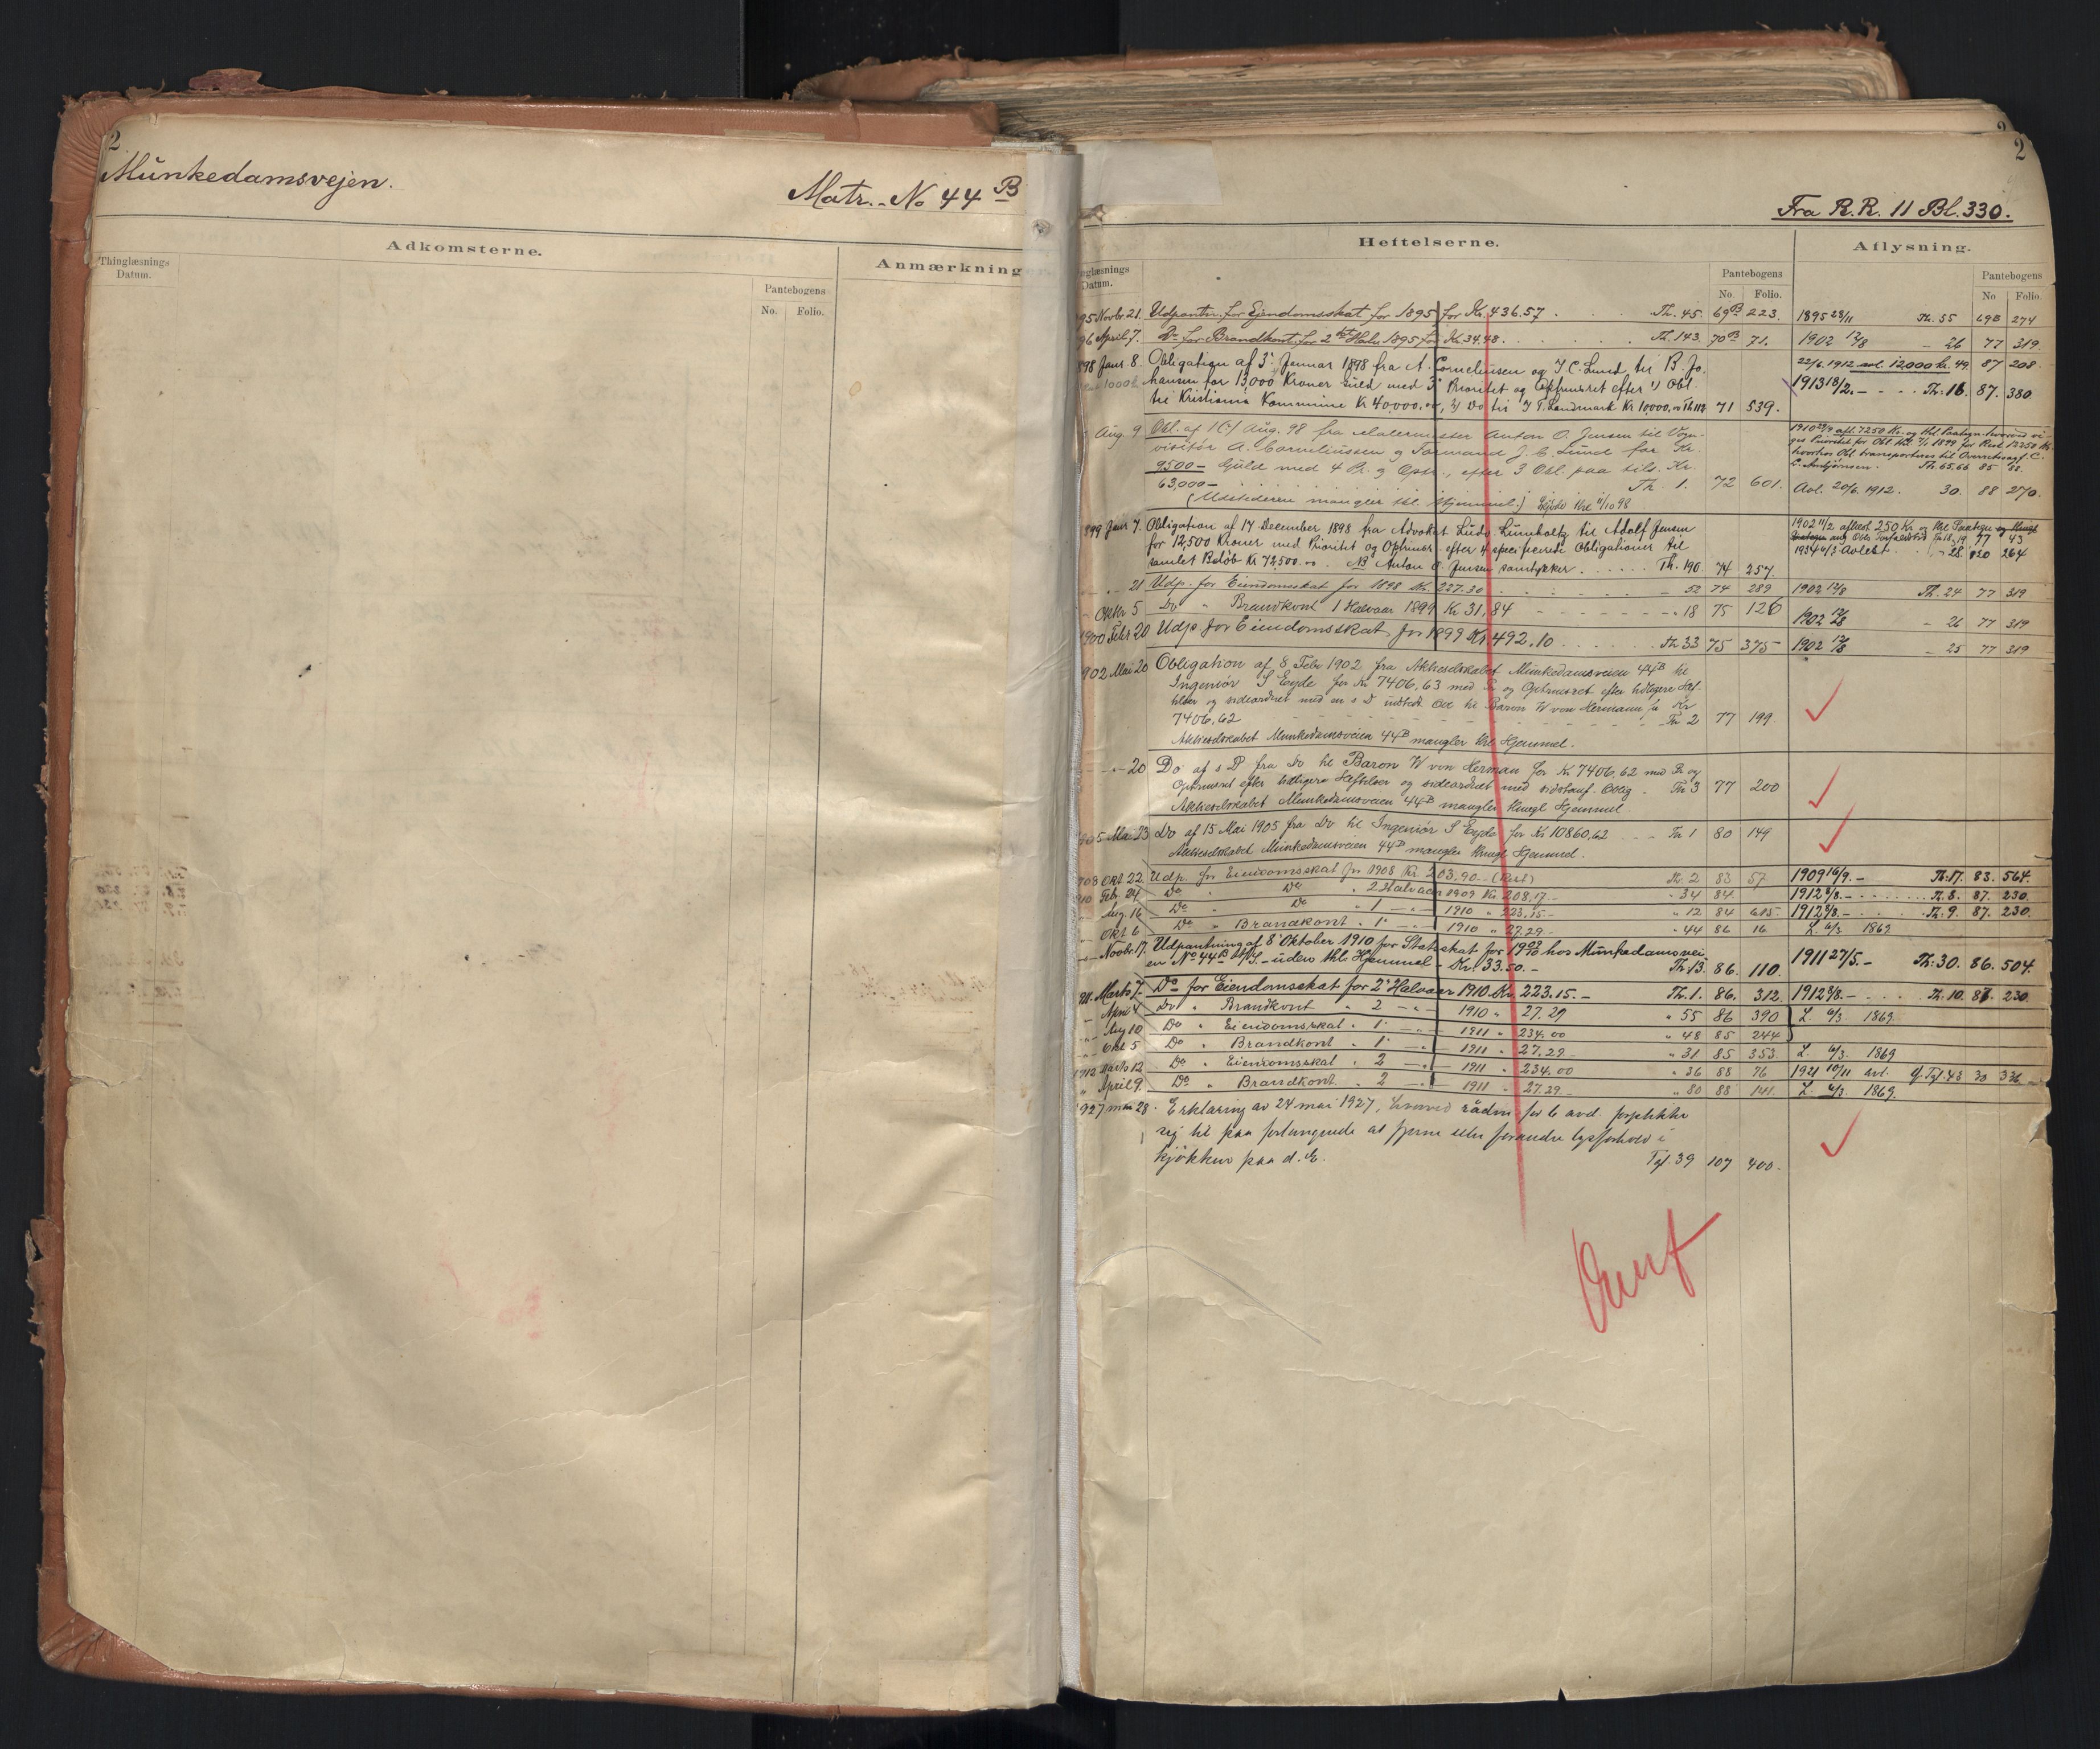 2
Munkedamsvejen.
Matr.-No 44 B
Adkomsterne.
Anmærkning
Thinglæsnings Datum.
Pantebogens
No. Folio.
2
Fra R.R. 11 Bl. 330.
Heftelserne.
Aflysning.
nglæsnings Datum.
Pantebogens
No. Folio.
Pantebogens
No Folio.
95 Novbr 21. Udpantn. for Ejendomsskat for 1895 for Kr. 436.57 Th. 45. 69B 223. 1895 28/11 Th. 55 69B 274
96 April 7. Do for Brandkont. for 2det Halv. 1895 Kr. 34.48. Th. 143. 70B 71. 1902 12/8 - 26 77 319.
898 Janr. 8. Obligation af 3' Januar 1898 fra A. Corneliussen og J C. Lund til B. Jo- 22/6. 1912 avl. 12,000 kr. 49. 87 208
hansen for 13,000 Kroner Guld med 3' Prioritet og Optrinsret efter 1) Obl. 1913 18/2. - Th: 16. 87. 380
til Kristiania Kommune Kr 40,000.00, 2) Do til J. T. Landmark Kr 10000.00 Th 112 71 539.
Aug. 9 Obl. af 1 (?) Aug. 98 fra Malermester Anton O. Jensen til Vogn- 1910 afl. 7250 Kr. og
visitør A. Corneliussen og Formand J. C. Lund for Kr. Prioritet for Obl. 7/1 1899 for Rest 12250 Kr.
9500 - Guld med 4 Pr. og Optr., efter 3 Obl. paa tils. Kr. hvorhos Obl. transporteres til Overretssagf. C.
63,000 - Th. 1. 72 601. Th. 65, 66 85
(Udstederen mangler thl. Hjemmel.) Skjøde thl 11/10 98 Avl. 20/6. 1912. 30. 88 270.
899 Janr 7. Obligation af 17 December 1898 fra Advokat Ludv. Lumholtz til Adolf Jensen 1902 11/2 aflæst 250 Kr. og thl Paategn
for 12,500 Kroner med Prioritet og Optrinsr. efter 4 specificerede Obligationer til ang Obls Forfaldstid Th 18, 19. 77 43
samlet Beløb Kr 72,500.00. NB Anton O. Jensen samtykker. Th. 190 74 257. 1934 6/3 Avlest - 28. 120 264
" - 21 Udp. for Eiendomsskat for 1898 Kr. 227.30 - 52 74 289 1902 12/8 Th. 24 77 319
Oktbr 5 Do " Brandkont 1 Halvaar 1899 Kr 31,84 - 18 75 126 1902 12/8 - 26 77 319
1900 Febr 20 Udp for Eiendomsskat for 1899 Kr 492.10 Th 33 75 375 1902 12/8 - 25 77 319
902 Mai 20 Obligation af 8 Febr 1902 fra Aktieselskabet Munkedamsveien 44B til
Ingeniør S Eyde for Kr 7406,63 med Pr og Optrinsret efter tidligere Hef-
telser og sideordnet med en s D udstedt Obl til Baron W von Hermann for Kr
7406,62 Th 2 77 199
Aktieselskabet Munkedamsveien 44B mangler thl Hjemmel.
- 20 Do af s D fra Do til Baron W von Herman for Kr 7406,62 med Pr og
Optrinsret efter tidligere Heftelser og sideordnet med sidstanf. Oblig. Th 3 77 200
Aktieselskabet Munkedamsveien 44B mangler thingl Hjemmel.
1905 Mai 23 Do af 15 Mai 1905 fra Do til Ingeniør S Eyde for Kr 10860,62 Th 1 80 149
Aktieselskabet Munkedamsveien 44B mangler thingl Hjemmel.
908 Okt. 22. Udp. for Eiendomsskat for 1908 Kr. 203.90 - (Rest) Th. 2 83 57 1909 16/9. - Th. 17. 83. 564.
910 Febr. 24 Do " Do " 2 Halvaar 1909 Kr. 208.17 - " 34 84 1912 8/8. - Th. 8. 87. 230.
" Aug. 16 Do " Do " 1 - " - 1910 " 223.15 - " 12 84 615 1912 8/8. - Th. 9. 87. 230.
" Okt. 6 Do " Brandkont " 1 - " - 1910 " 27.29 - " 44 86 16 L. 6/3 1869
" Novbr. 17. Udpantning af 8' Oktober 1910 for Statsskat for 1909/10 hos Munkedamsvei-
en No 44B A/S. - uden thl. Hjemmel - Kr. 33.50. - Th 13. 86. 110. 1911 27/5. - Th: 30. 86. 504.
911. Marts 7. Do for Eiendomsskat for 2' Halvaar 1910. Kr. 223.15. - Th. 1. 86. 312. 1912 8/8. - Th. 10. 87. 230.
" April 4 Do " Brandkont " 2 - " - 1910 " 27.29 " 55 86 390 L. 6/3 1869.
" Aug 10 Do " Eiendomsskat " 1 - " - 1911 " 234.00 " 48 85 244
" Okt 5 Do " Brandkont " 1 - " - 1911 " 27.29 - " 31 85 353 L. 6/3. 1869
1912 Marts 12 Do " Eiendomsskat " 2 - " - 1911 " 234.00 " 36 88 76 1921 10/11 avl. Tgf. 43 30 336
" April 9. Do " Brandkont. " 2 - " - 1911 " 27.29 - " 80 88 141. L. 6/3. 1869.
1927 mai 28. Erklæring av 24 mai 1927, hvorved rådm. for 6 avd. forplikter
sig til paa forlangende at fjerne eller forandre lysforhold i
kjøkken paa d. E. Tgf. 39 107 400.